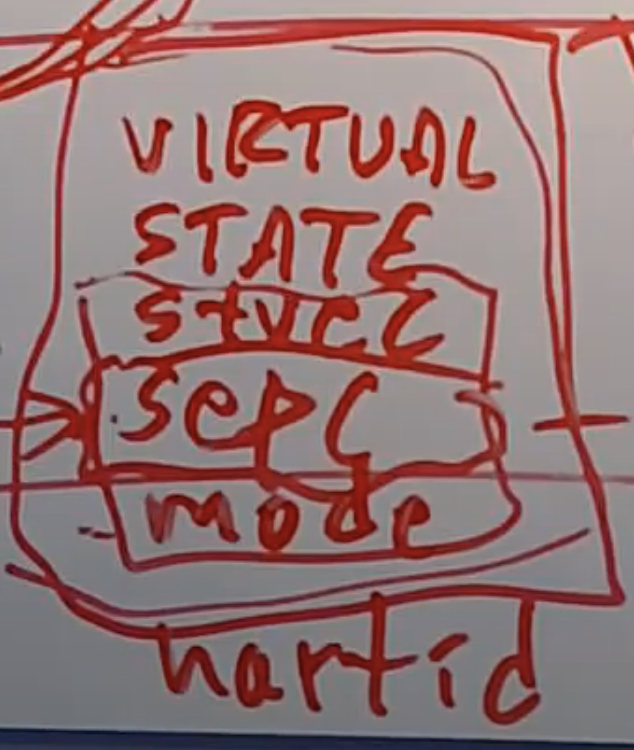 VIRTUAL
STATE
stvec
sepc
mode
hartid